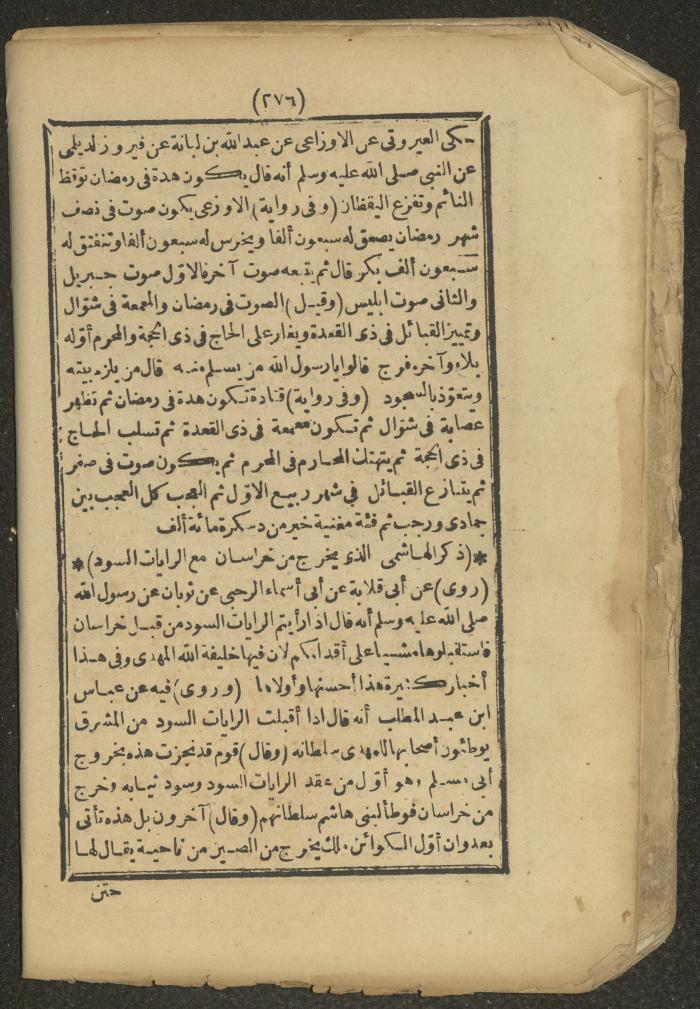 (٢٧٦)
كى العيروتى عن الاوزاعى عن عبد الله بن لبانة عن فيروز لديلمى
عن النبى صلى الله عليه وسلم أنه قال يكون هدة فى رمضان توقظ
النائم وتفزع اليقظان (وفى رواية) الاوزعى يكون صوت فى نصف
شهر رمضان يصعق له سبعون ألفا ويخرس له سبعون ألفا وتنفتق له
سبعون ألف بكر قال ثم يتبعه صوت آخر فالاول صوت جبريل
والثانى صوت ابليس (وقيل) الصوت فى رمضان والمعمعة فى شوّال
وتمييز القبائل فى ذى القعدة ويغار على الحاج فى ذى الحجة والمحرم أوّله
بلاء وآخره فرج قالوا يارسول الله من يسلم منه قال من يلزم بيته
ويتعوّذ بالسجود (وفى رواية) قتادة تكون هدة فى رمضان ثم تظهر
عصابة فى شوّال ثم تكون معمعة فى ذى القعدة ثم تسلب الحاج
فى ذى الحجة ثم ينتهتك المحارم فى المحرم ثم يكون صوت فى صفر
ثم يتنازع القبائل فى شهر ربيع الاوّل ثم العجب كل العجب بين
جمادى ورجب ثم فئة مغنية خير من دسكرة مائة ألف
*(ذكر الهاشمى الذى يخرج من خراسان مع الرايات السود)*
(روى) عن أبى قلابة عن أبى أسماء الرحبى عن ثوبان عن رسول الله
صلى الله عليه وسلم أنه قال اذا رأيتم الرايات السود من قبل خراسان
فاستقبلوها مشيا على أقدامكم لان فيها خليفة الله المهدى وفى هذا
أخبار كثيرة هذا أحسنها وأولاها (وروى) فيه عن عباس
ابن عبد المطلب أنه قال اذا أقبلت الرايات السود من المشرق
يوطئون أصحابها للمهدى سلطانه (وقال) قوم قد نجزت هذه بخروج
أبى مسلم وهو أوّل من عقد الرايات السود وسود ثيابه وخرج
من خراسان فوطأ لبنى هاشم سلطانهم (وقال) آخرون بل هذه تأتى
بعد وان أوّل الكوائن ملك يخرج من الصين من ناحية يقال لها
ختن